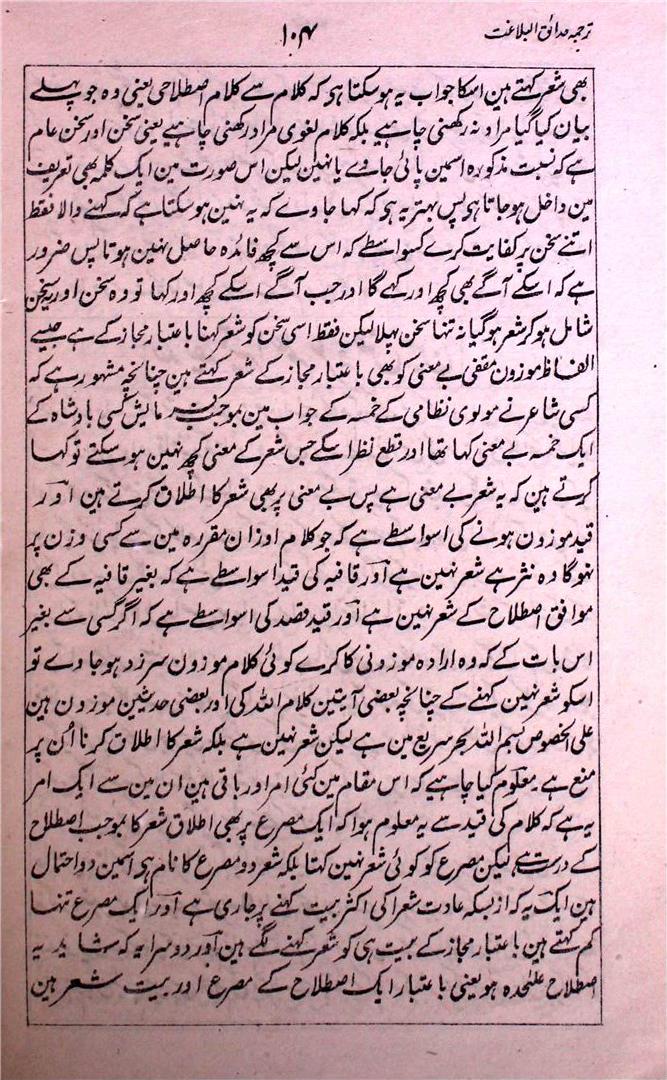 ترجمہ حدائق البلاغت
۱۰۴
بھی شعر کہتے ہین اسکا جواب یہ ہو سکتا ہی کہ کلام سے کلام اصطلاحی یعنی وہ جو پہلے
بیان کیا گیا مراد نہ رکھنی چاہیے بلکہ کلام لغوی مراد رکھنی چاہیے یعنی سخن اور سخن عام
ہے کہ نسبت مذکورہ اسمین پائی جاوے یا نہین لیکن اس صورت مین ایک کلمہ بھی تعریف
مین داخل ہو جاتا ہی پس بہتر یہ ہی کہ کہا جاوے کہ یہ نہین ہو سکتا ہے کہ کہنے والا فقط
اتنے سخن پر کفایت کرے کسواسطے کہ اس سے کچھ فائدہ حاصل نہین ہوتا پس ضرور
ہے کہ اسکے آگے بھی کچھ اور کہے گا اور جب آگے اسکے کچھ اور کہا تو وہ سخن اور یہ سخن
شامل ہو کر شعر ہو گیا نہ تنہا سخن پہلا لیکن فقط اسی سخن کو شعر کہنا باعتبار مجاز کے ہے جیسے
الفاظ موزون مقفیٰ بے معنی کو بھی باعتبار مجاز کے شعر کہتے ہین چنانچہ مشہور ہے کہ
کسی شاعر نے مولوی نظامی کے خمسہ کے جواب مین بموجب فرمایش کسی بادشاہ کے
ایک خمسہ بے معنی کہا تھا اور قطع نظر اسکے جس شعر کے معنی کچھ نہین ہو سکتے تو کہا
کرتے ہین کہ یہ شعر بے معنی ہے پس بے معنی پر بھی شعر کا اطلاق کرتے ہین اور
قید موزون ہونے کی اسواسطے ہے کہ جو کلام اوزان مقررہ مین سے کسی وزن پر
نہوگا وہ نثر ہے شعر نہین ہے اور قافیہ کی قید اسواسطے ہے کہ بغیر قافیہ کے بھی
موافق اصطلاح کے شعر نہین ہے اور قید قصد کی اسواسطے ہے کہ اگر کسی سے بغیر
اس بات کے کہ وہ ارادہ موزونی کا کرے کوئی کلام موزون سرزد ہو جاوے تو
اسکو شعر نہین کہنے کے چنانچہ بعضی آیتین کلام اللہ کی اور بعضی حدیثین موزون ہین
علی الخصوص بسم اللہ بحر سریع مین ہے لیکن شعر نہین ہے بلکہ شعر کا اطلاق کرنا اُن پر
منع ہے معلوم کیا چاہیے کہ اس مقام مین کئی امر اور باقی ہین ان مین سے ایک امر
یہ ہے کہ کلام کی قید سے یہ معلوم ہوا کہ ایک مصرع پر بھی اطلاق شعر کا بموجب اصطلاح
کے درست ہے لیکن مصرع کو کوئی شعر نہین کہتا بلکہ شعر دو مصرع کا نام ہی اسمین دو احتمال
ہین ایک یہ کہ از بسکہ عادت شعرا کی اکثر بیت کہنے پر جاری ہے اور ایک مصرع تنہا
کم کہتے ہین باعتبار مجاز کے بیت ہی کو شعر کہنے لگے ہین اور دوسرا یہ کہ شاید یہ
اصطلاح علیٰحدہ ہو یعنی باعتبار ایک اصطلاح کے مصرع اور بیت شعر ہین